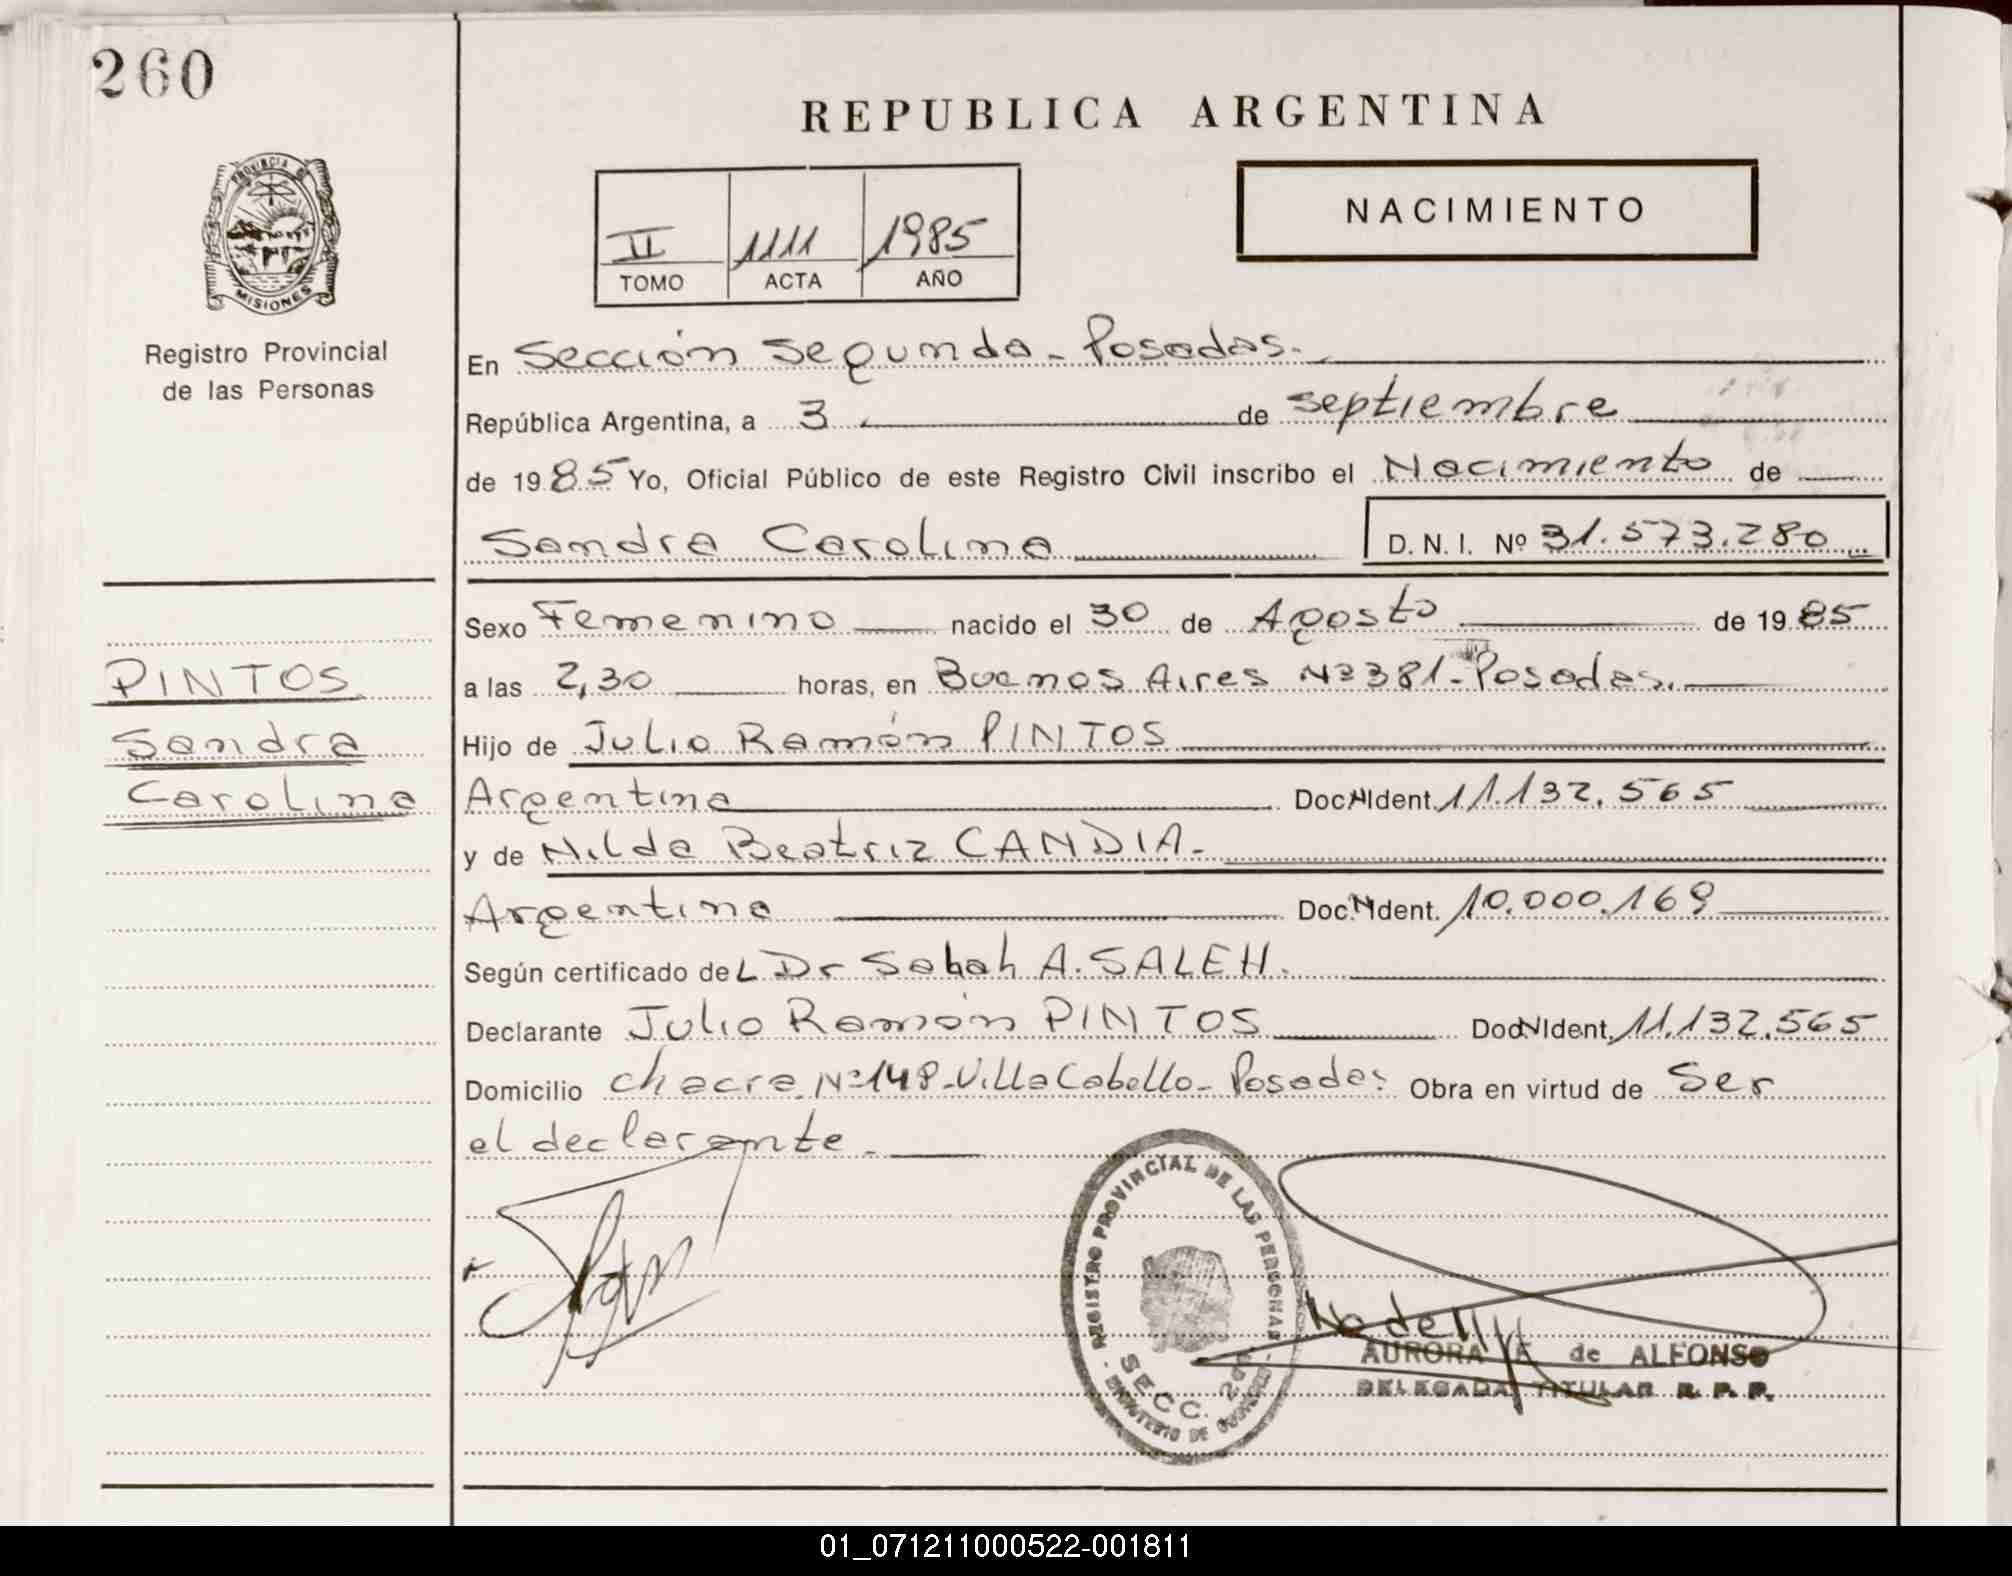 260
REPUBLICA ARGENTINA
PROVINCIA DE
MISIONES
Registro Provincial
de las Personas
NACIMIENTO
II 1111 1985
TOMO ACTA AÑO
En Sección Segunda - Posadas.
República Argentina, a 3 de septiembre
de 1985 Yo, Oficial Público de este Registro Civil inscribo el Nacimiento de
Sandra Carolina D. N. I. Nº 31.573.280
Sexo Femenino nacido el 30 de Agosto de 1985
a las 2,30 horas, en Buenos Aires Nº 381 - Posadas.
Hijo de Julio Ramón PINTOS
Argentina Doc. N Ident. 11.132.565
y de Nilda Beatriz CANDIA.-
Argentina Doc. N Ident. 10.000.169
Según certificado del Dr Sabah A. SALEH.
Declarante Julio Ramón PINTOS Doc. N Ident. 11.132.565
Domicilio chacra Nº 148 - Villa Cabello - Posadas Obra en virtud de Ser
el declarante.
PINTOS
Sandra
Carolina
REGISTRO PROVINCIAL DE LAS PERSONAS
SECC. 2da
MINISTERIO DE GOBIERNO
AURORA F. de ALFONSO
DELEGADA TITULAR R. P. P.
01_071211000522-001811